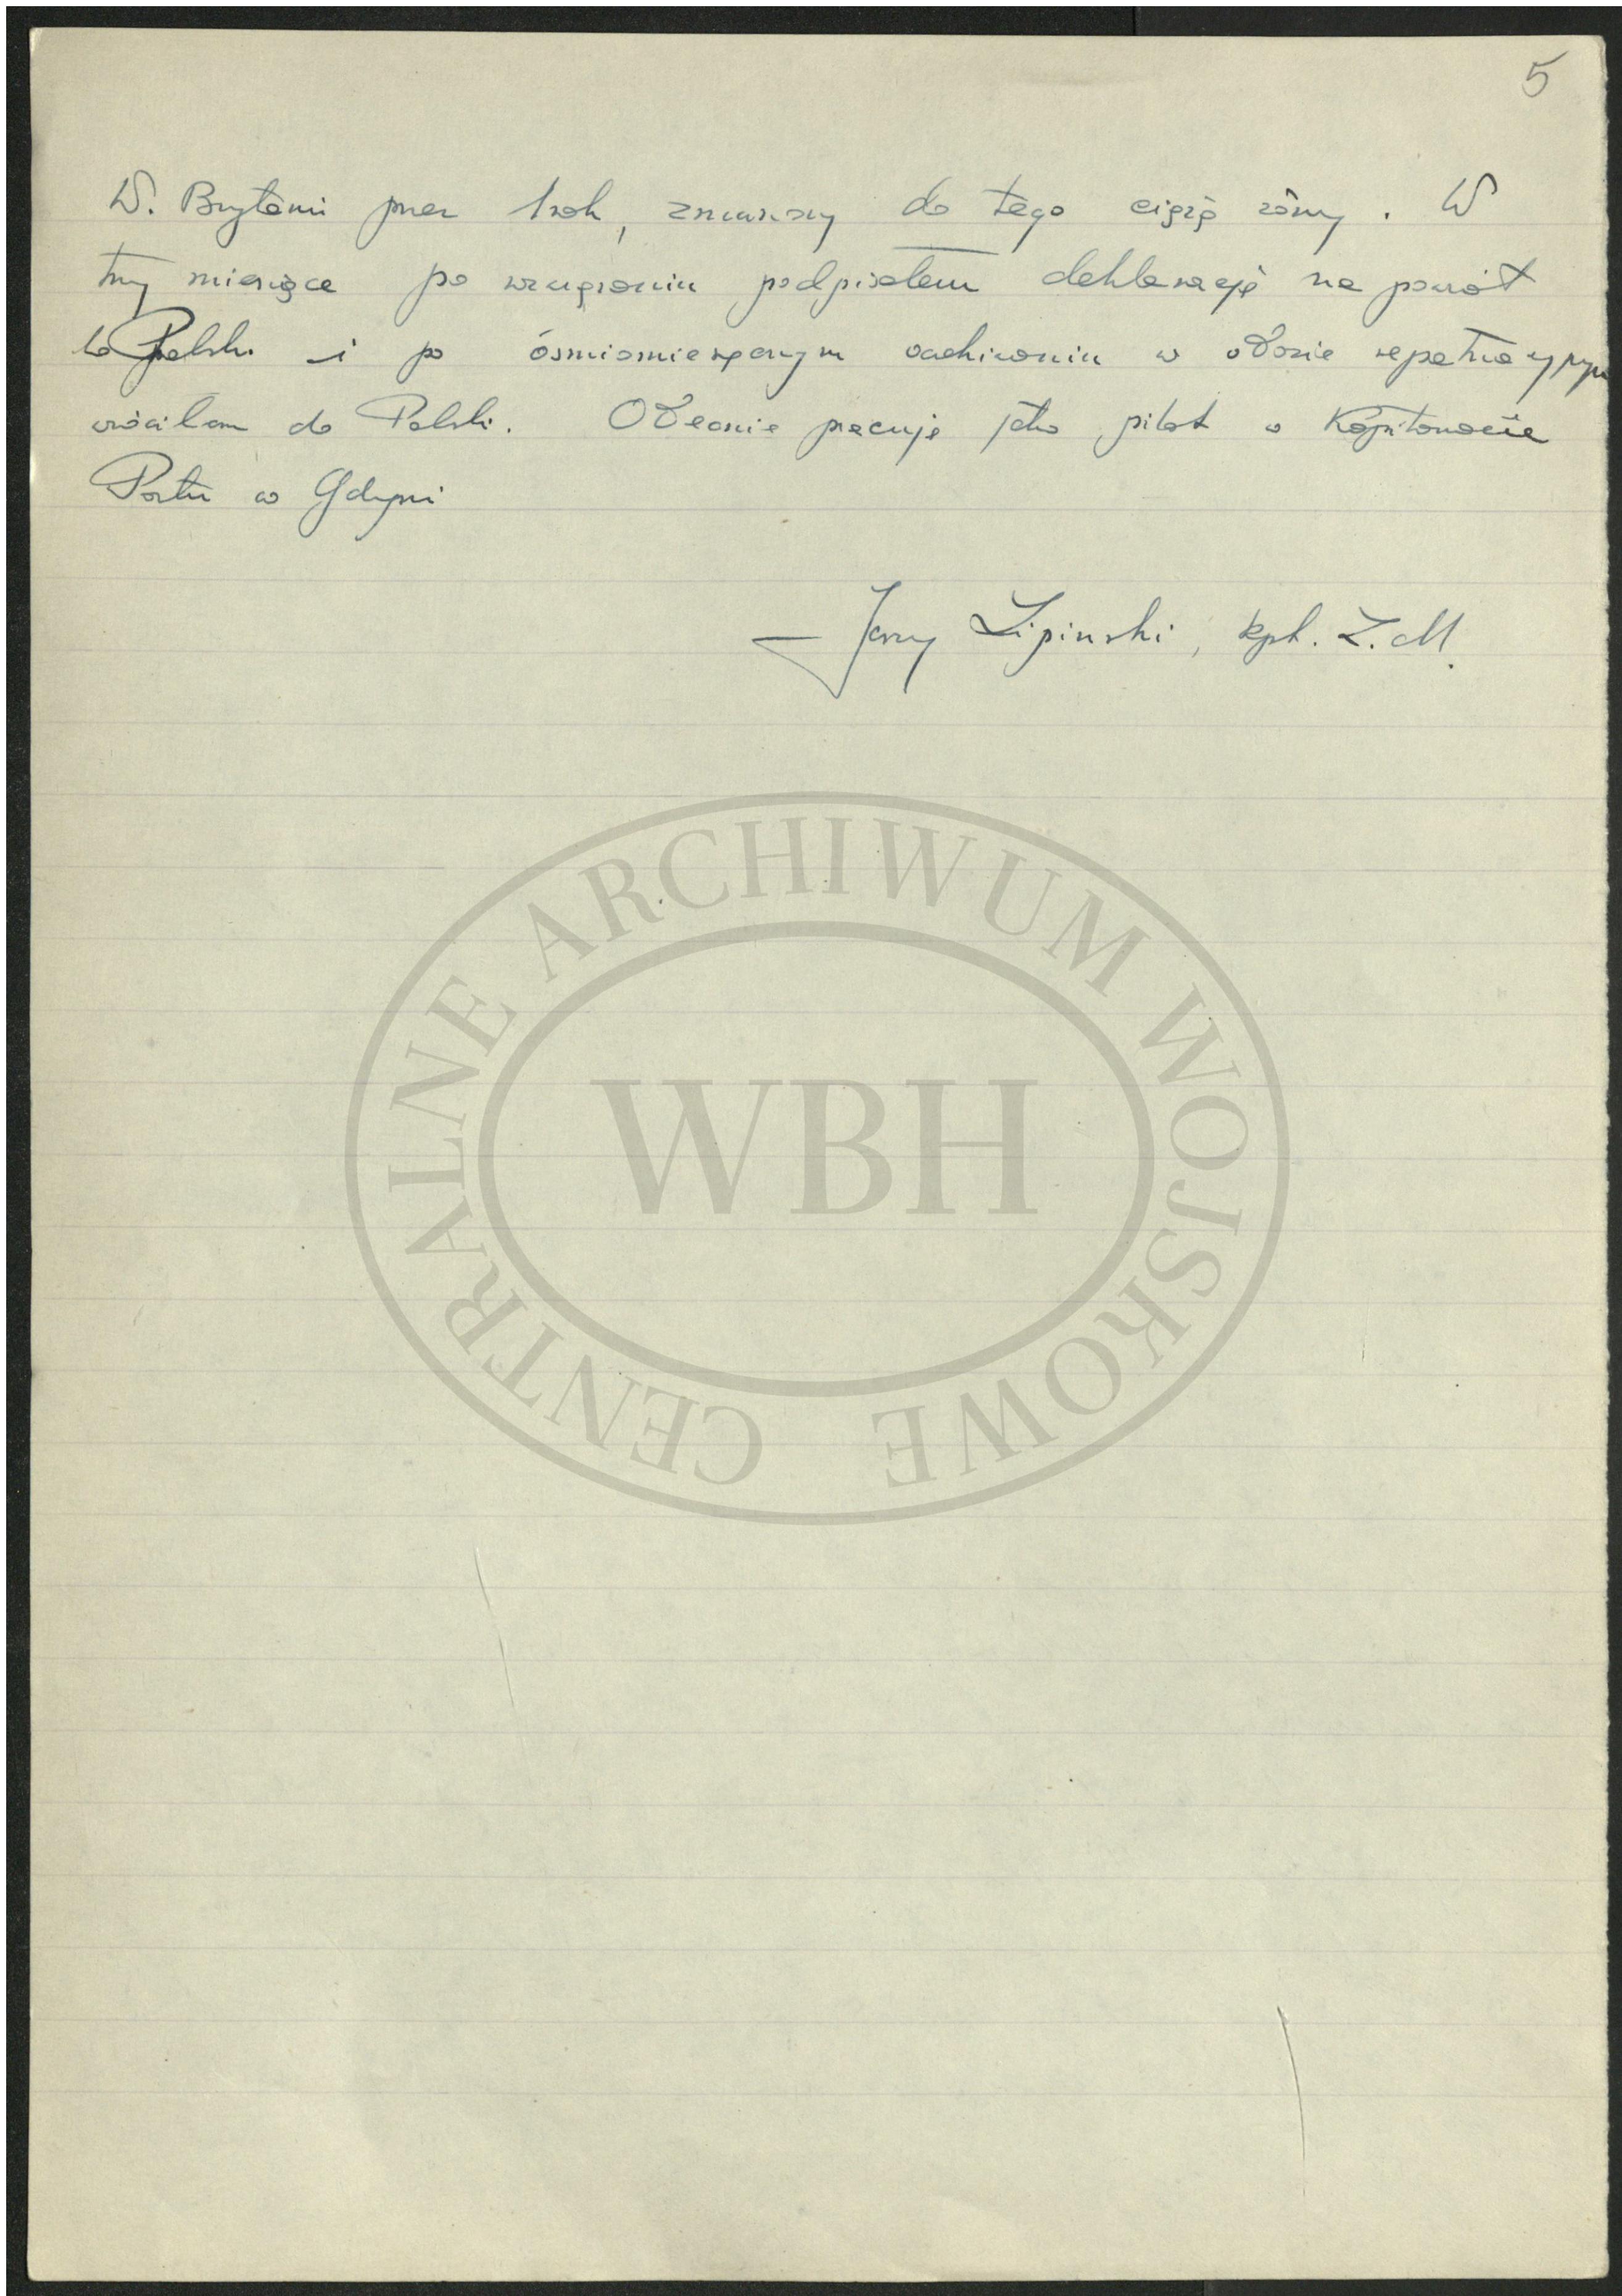 5
W. Brytanii przez 1 rok, zmuszony do tego ciążą żony. W
trzy miesiące po podpisałem deklarację na powrót
do Polski i po ośmiomiesięcznym oczekiwaniu w obozie repatriacyjnym
wróciłem do Polski. Obecnie pracuję jako pilot w Kapitanacie
Portu w Gdyni
Jerzy Lipinski, kpt. Ż. M.
CENTRALNE ARCHIWUM WOJSKOWE
WBH